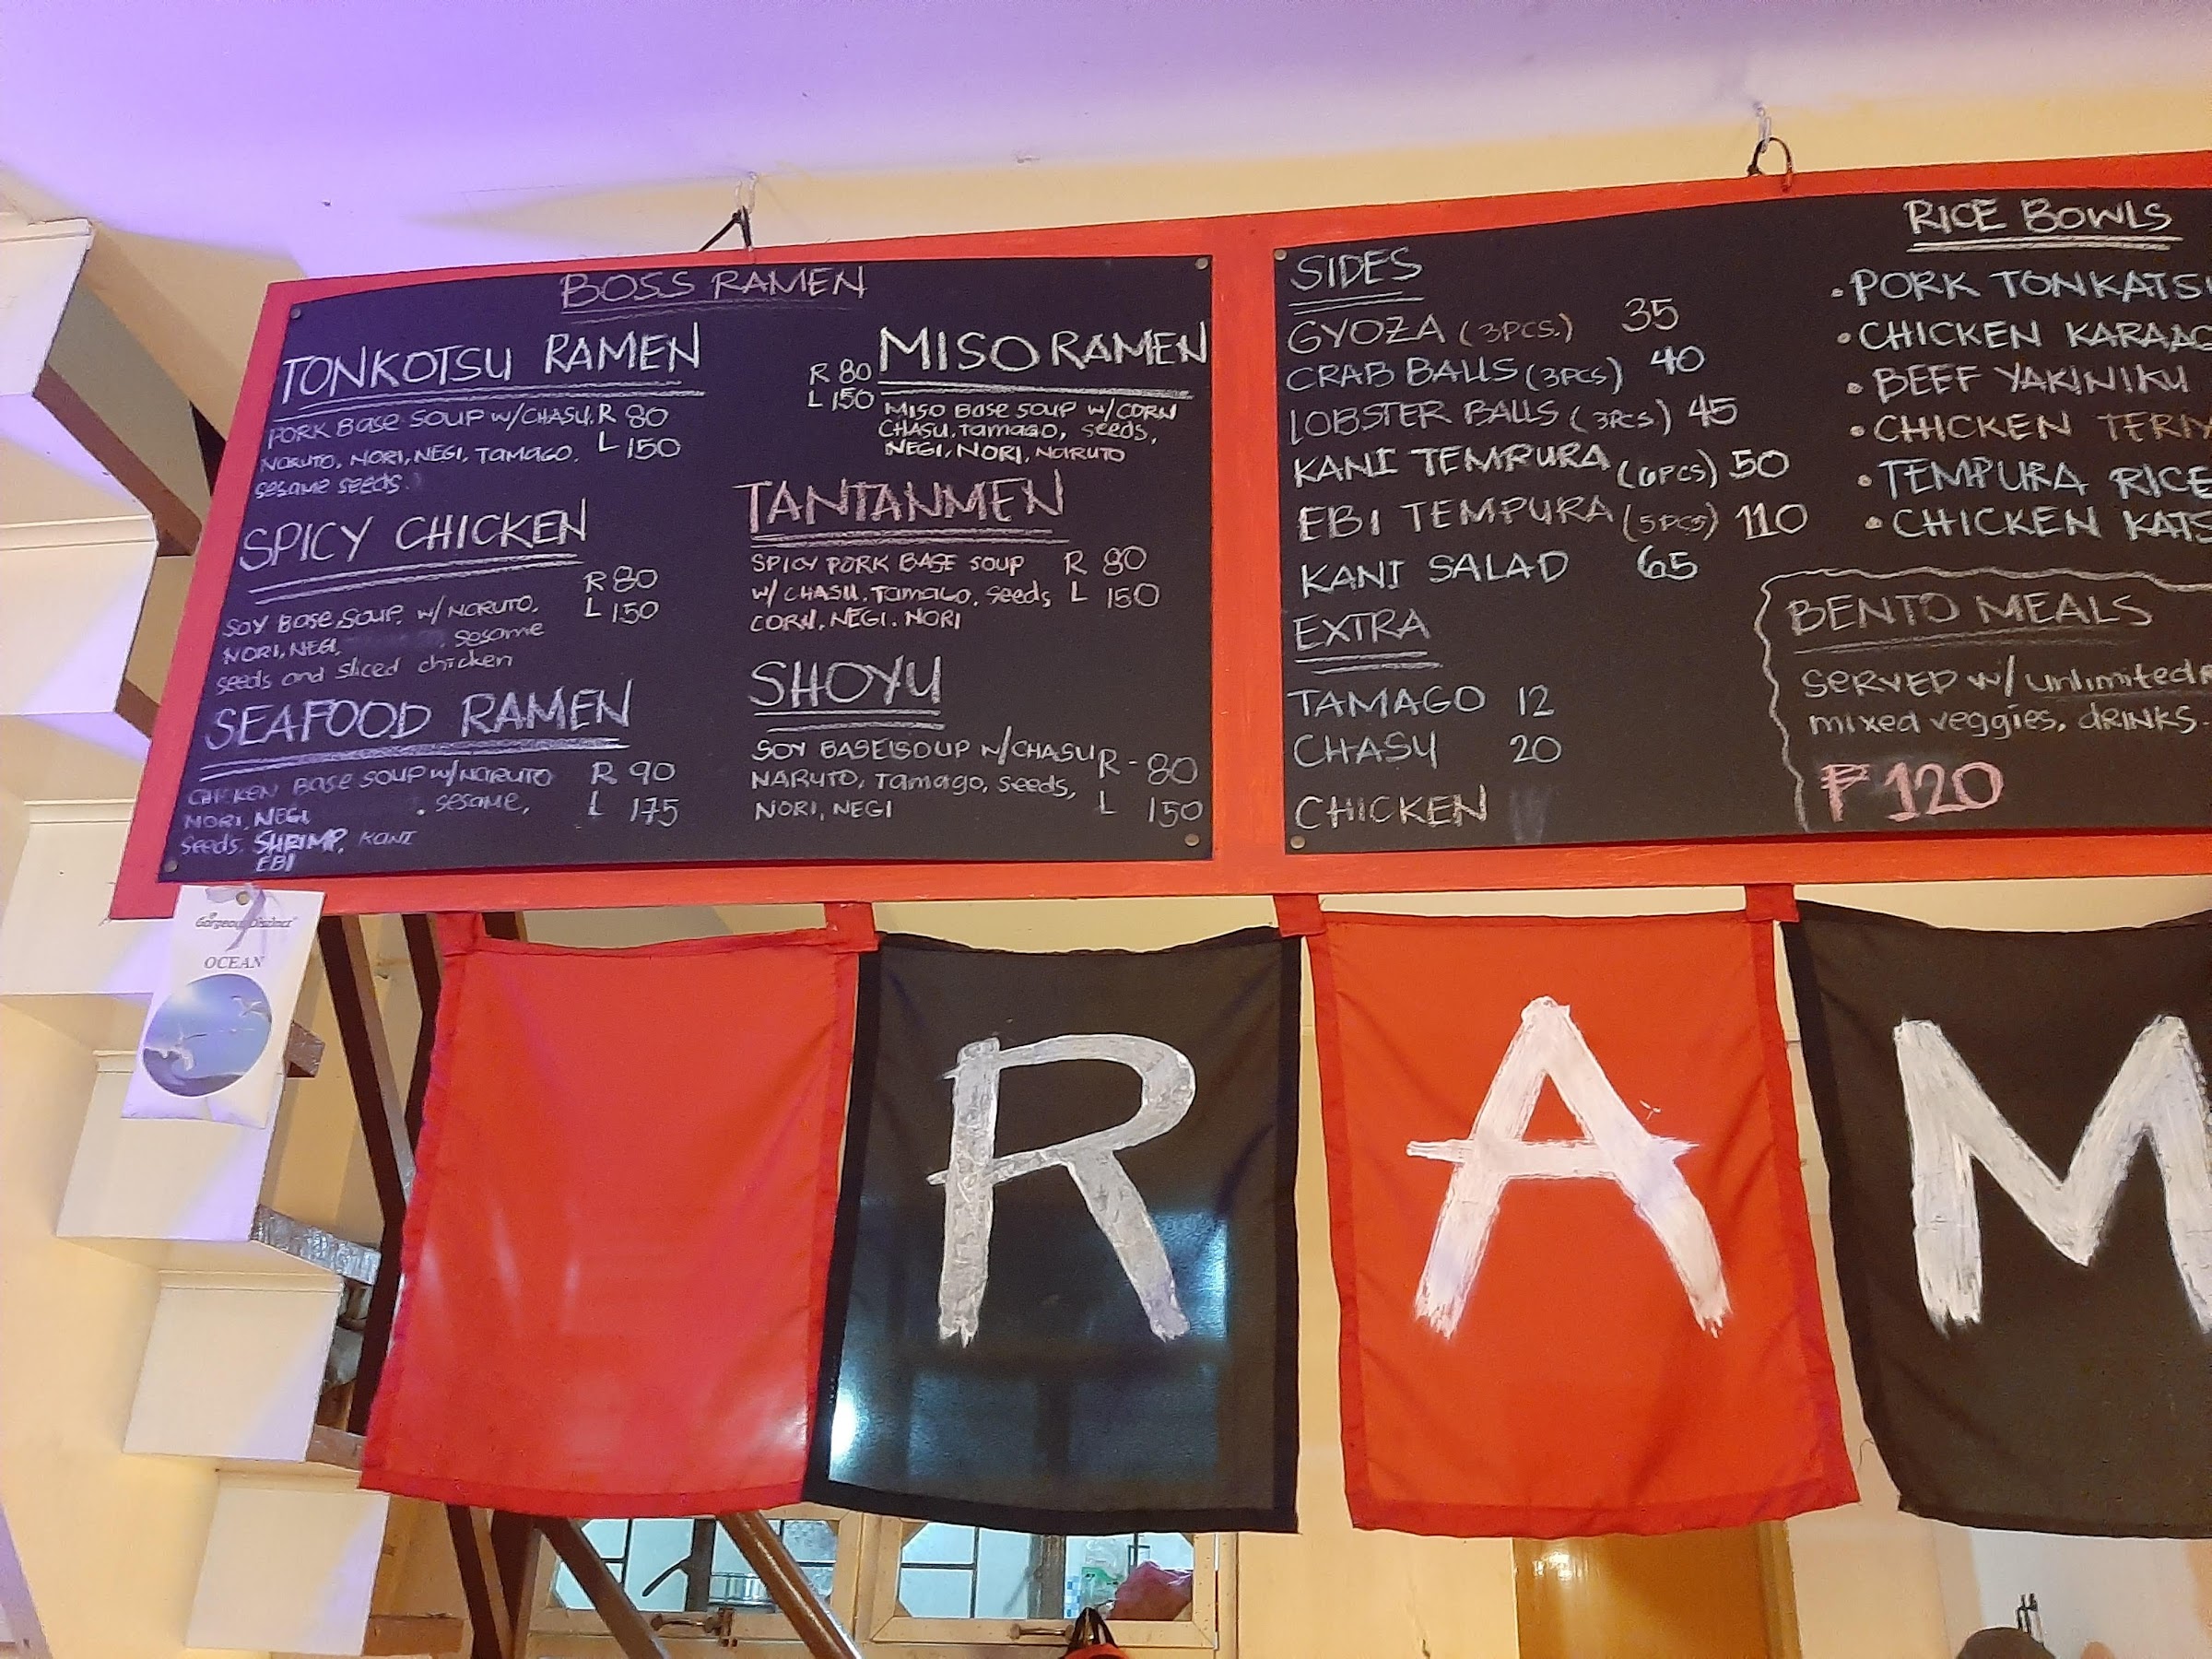 BOSS RAMEN
TONKOTSU RAMEN
PORK BASE SOUP W/CHASU, R 80
NARUTO, NORI, NEGI, TAMAGO, L 150
SESAME SEEDS.
SPICY CHICKEN
R 80
SOY BASE SOUP, W/ NARUTO, L 150
NORI, NEGI, , SESAME
seeds and sliced chicken
SEAFOOD RAMEN
CHICKEN BASE SOUP W/NARUTO R 90
NORI, NEGI . SESAME, L 175
seeds, SHRIMP, KANI
EBI
MISO RAMEN
R 80
L 150
MISO BASE SOUP W/CORN
CHASU, TAMAGO, seeds,
NEGI, NORI, NARUTO
TANTANMEN
SPICY PORK BASE SOUP R 80
W/ CHASU, TAMAGO, seeds L 150
CORN, NEGI, NORI
SHOYU
SOY BASE SOUP W/CHASU R - 80
NARUTO, Tamago, seeds,
NORI, NEGI L 150
SIDES
GYOZA (3PCS.) 35
CRAB BALLS (3PCS) 40
LOBSTER BALLS (3PCS.) 45
KANI TEMPURA (6PCS) 50
EBI TEMPURA (5PCS) 110
KANI SALAD 65
EXTRA
TAMAGO 12
CHASU 20
CHICKEN
RICE BOWLS
• PORK TONKATS
• CHICKEN KARAAG
• BEEF YAKINIKU
• CHICKEN TERIY
• TEMPURA RICE
• CHICKEN KATS
BENTO MEALS
SERVED W/ unlimited
mixed veggies, DRINKS.
₱120
Gorgeous District
OCEAN
RAM